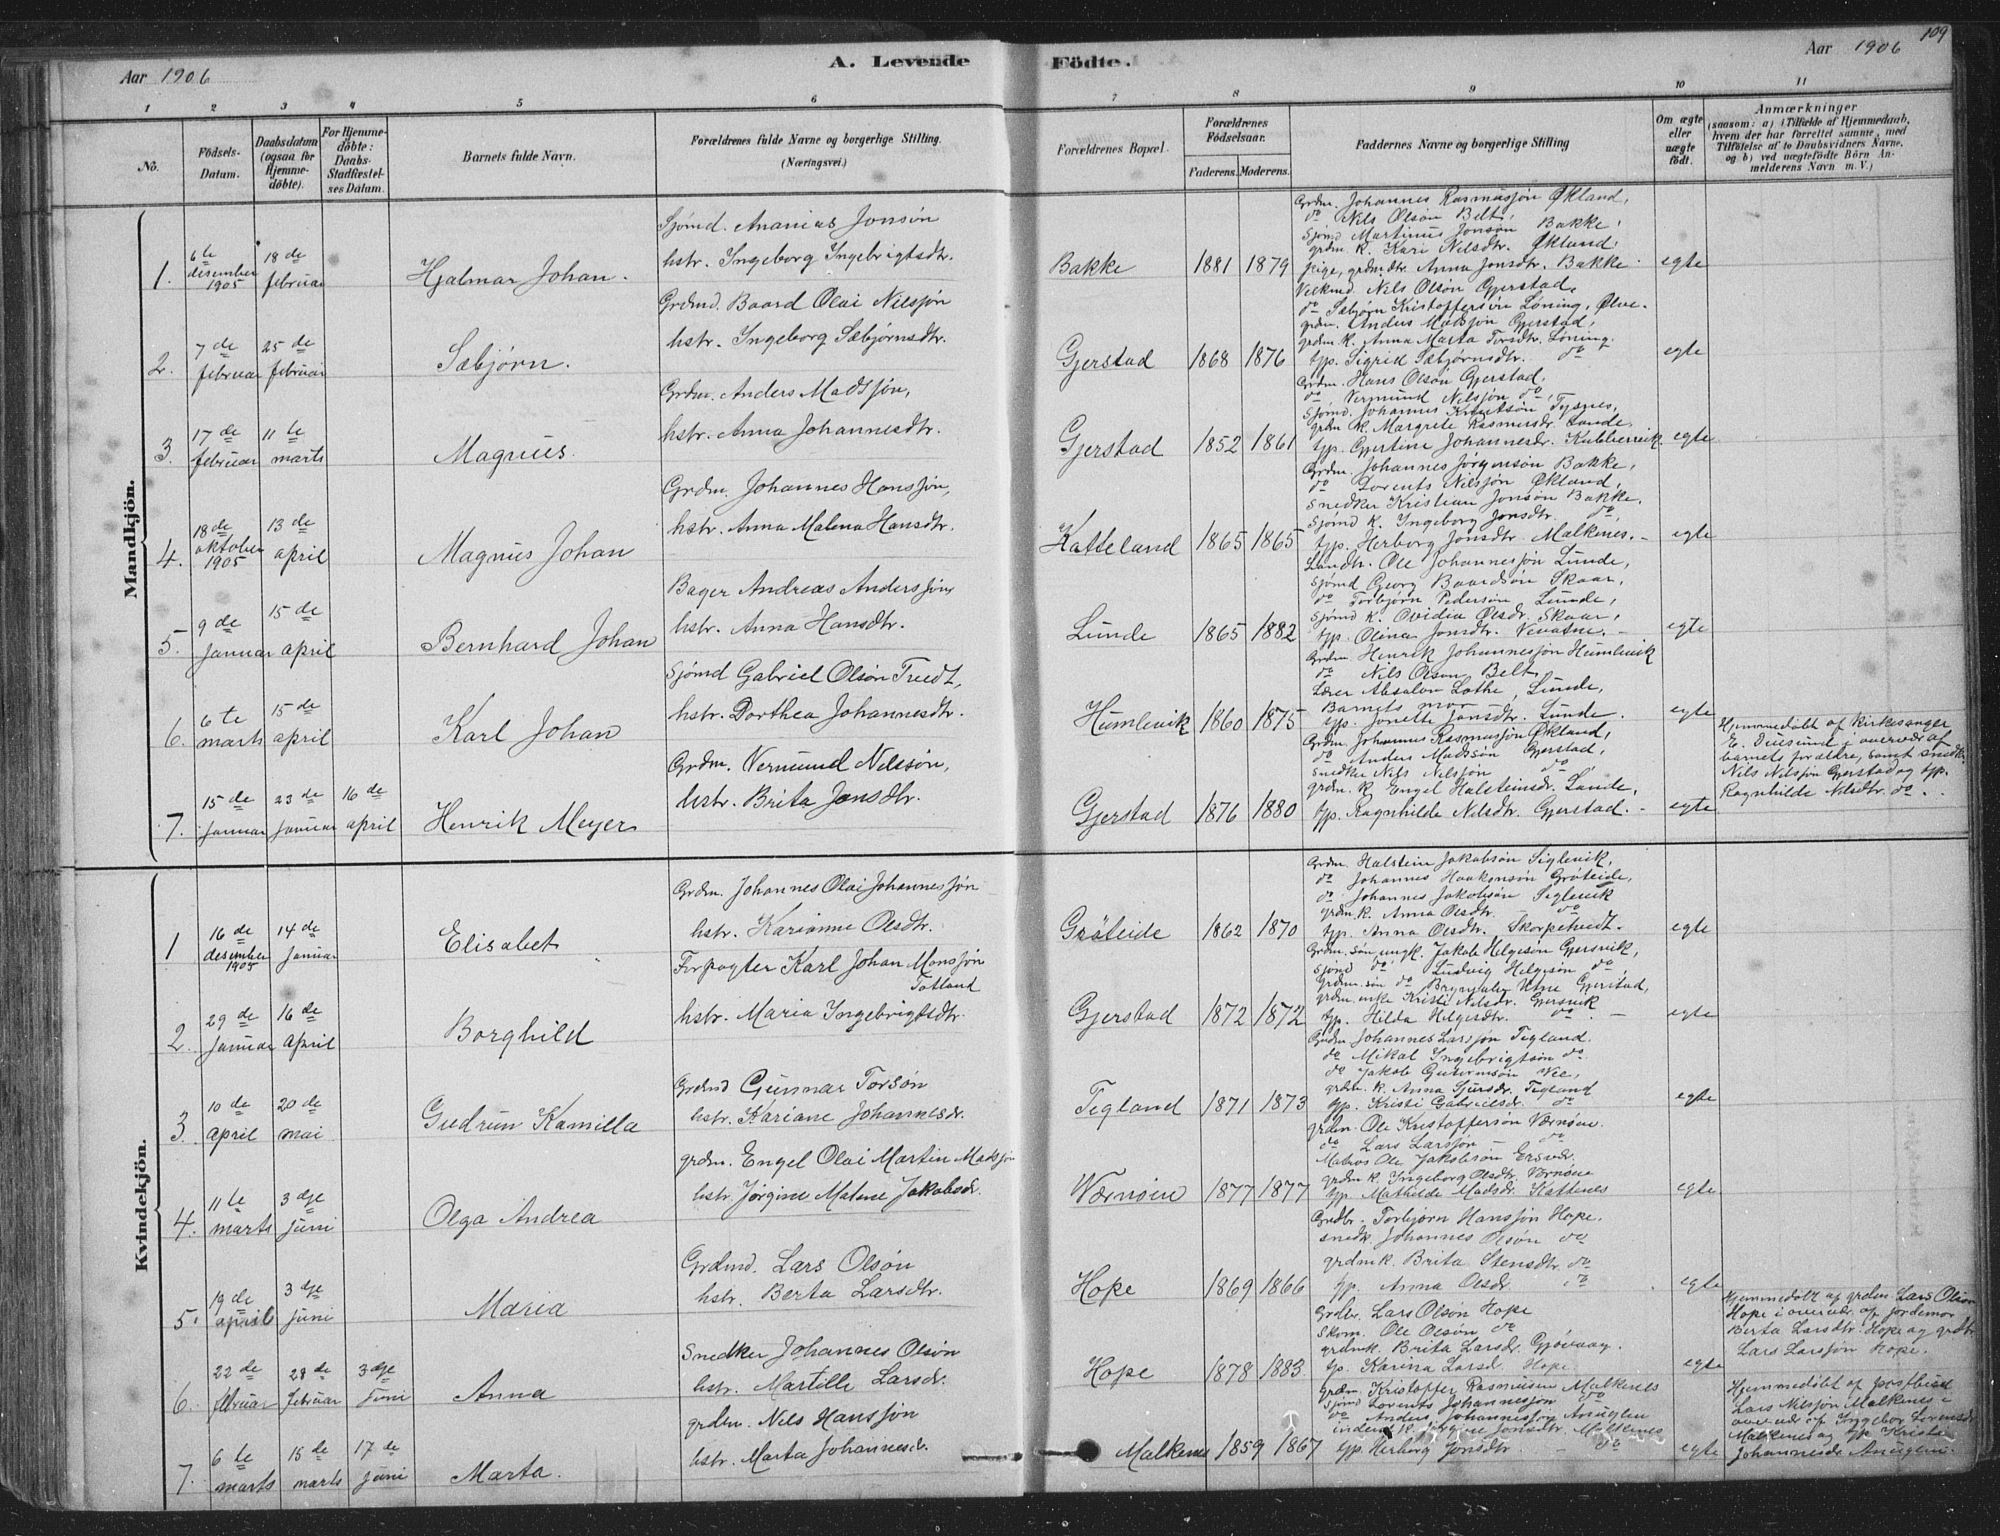 Aar 1906
A. Levende
Födte.
Aar 1906
109
1
2
3
4
5
6
7
8
9
10
11
No.
Födsels-
Datum.
Daabsdatum
(ogsaa for
Hjemme-
döbte).
For Hjemme-
döbte:
Daabs-
Stadfæstel-
ses Datum.
Barnets fulde Navn.
Forældrenes fulde Navne og borgerlige Stilling.
(Næringsvei.)
Forældrenes Bopæl.
Forældrenes
Födselsaar.
Faderens.
Moderens.
Faddernes Navne og borgerlige Stilling
Om ægte
eller
uægte
födt.
Anmærkninger
(saasom: a) i Tilfælde af Hjemmedaab,
hvem der har forrettet samme, med
Tilföielse af to Daabsvidners Navne,
og b) ved uægtefödte Börn An-
melderens Navn m. V.)
Mandkjön.
1.
6te
desember
1905
18de
februar
Hjalmar Johan.
Sjømd. Ananias Jonsøn
hstr. Ingeborg Ingebrigtsdtr.
Bakke
1881
1879
Grdm. Johannes Rasmusjøn Økland,
do Nils Olsøn Belt,
Sjømd Martinus Jonsøn Bakke,
grdm. k. Kari Nilsdtr. Økland,
pige, grdmdtr. Anna Jonsdtr. Bakke.
egte
2.
7de
februar
25de
februar
Sæbjørn.
Grdmd. Baard Olai Nilsjøn
hstr. Ingeborg Sæbjørnsdtr.
Gjerstad
1868
1876
Nils Olsøn Gjerstad,
do Sæbjørn Kristoffersøn Løning, Ølve.
grdm. Anders Madsjøn Gjerstad,
grdm k. Anna Marta Torsdtr. Løning.
typ. Sigrid Sæbjørnsdtr. do
egte
3.
17de
februar
11te
marts
Magnus
Grdm. Anders Madsjøn,
hstr. Anna Johannesdtr.
Gjerstad
1852
1861
Grdm. Hans Olsøn Gjerstad,
do, Vermund Nilsjøn do,
Sjømd. Johannes Knutsøn Tysnes,
grdm k. Margrete Rasmusdr. Lunde,
typ. Gjertine Johannesdr. Kubbervik
egte
4.
18de
oktober
1905
13de
april
Magnus Johan
Grdm. Johannes Hansjøn,
hstr. Anna Malena Hansdtr.
Katteland
1865
1865
Grdm. Johannes Jørgensøn Bakke,
do Lorents Nilsjøn Økland,
Snedker Kristian Jonsøn Bakke.
Sjømd k. Ingeborg Jonsdtr. do,
typ. Herborg Jonsdtr Malkenes. -
egte
5.
9de
januar
15de
april
Bernhard Johan
Bager Andreas Andersjøn
hstr. Anna Hansdtr.
Lunde
1865
1882
Landhr. Ole Johannesjøn Lunde,
Sjømd Georg Baardsøn Skaar,
do Torbjørn Pedersøn Lunde,
Sjømd k. Ovidia Olsdr. Skaar,
typ. Olina Jonsdtr. -
egte
6.
6te
marts
15de
april
Karl Johan
Sjømd Gabriel Olsøn Tvedt,
hstr. Dorthea Johannesdtr.
Humlevik
1860
1875
Grdm. Henrik Johannesjøn Humlevik
do Nils Olsøn Belt,
Lærer Absalon Lothe, Lunde,
Barnets mor
typ. Jonette Jonsdtr. Lunde.
egte
7.
15de
januar
23de
januar
16de
april
Henrik Meyer
Grdm. Vermund Nilsøn,
hstr. Brita Jonsdtr.
Gjerstad
1876
1880
Grdm Johannes Rasmusjøn Økland,
do Anders Madsøn Gjerstad,
Snedker Nils Nilsjøn do
grdm. k Engel Halsteinsdr. Lunde,
typ. Ragnhilde Nilsdtr. Gjerstad. -
egte
Hjemmedøbt af kirkesanger
E. i overvær af
barnets forældre, samt snedk.
Nils Nilsjøn Gjerstad og typ.
Ragnhilde Nilsdtr. do.
Kvindekjön.
1
16de
desember
1905
14de
januar
Elisabet
Grdm. Johannes Olai Johannesjøn
hstr. Karianne Olsdtr.
Gröteide
1862
1870
Grdm. Halstein Jakobsøn Siglevik,
do Johannes Haakonsøn Gröteide,
do Johannes Jakobsøn Siglevik
grdm. k. Anna Olsdtr. do
typ. Anna Olsdtr. Skorpetvedt.
egte
2
29de
januar
16de
april
Borghild
Forpagter Karl Johan Monsjøn
Totland
hstr. Maria Ingebrigtsdtr.
Gjerstad
1872
1872
Grdm. søn ungk. Jakob Helgesøn Gjersvik,
Sjømd do, Ludvig Helgesøn do,
Grdm. søn do Brynjulv Utne Gjerstad,
grdm. enke Kristi Nilsdr. Gjersvik
typ. Hilda Helgesdtr. do -
egte
3
10de
april
20de
mai
Gudrun Kamilla
Grdmd Gunnar Torsøn
hstr. Kariane Johannesdr.
Tegland
1871
1873
Grdm Johannes Larsjøn Tegland.
do Mikal Ingebrigtsøn do.
do Jakob Guttormsøn Vee,
grdm. k. Anna Sjursdr. Tegland
typ. Kristi Gabrielsdr. do
egte
4.
11te
marts
3dje
juni
Olga Andrea
grdm. Engel Olai Martin Madsjøn
hstr. Jørgine Malene Jakobsdr.
Værnøen
1877
1877
grdm. Ole Kristoffersøn Værnøen.
do Lars Larsjøn - do
Matros Ole Jakobsøn
grdm k. Ingeborg Olsdtr. Værnøen
typ. Mathilde Madsdr. Kattenes
egte
5.
19de
april
3dje
juni
Maria
Grdmd. Lars Olsøn
hstr. Berta Larsdtr.
Hope
1869
1866
Grdbr. Torbjørn Hansjøn Hope.
snedk Johannes Olsøn do
grdmk. Brita Stensdtr. do
typ. Anna Olsdr. do
egte
6.
22de
februar
28de
februar
3dje
juni
Anna
Snedker Johannes Olsøn
hstr. Martille Larsdr.
Hope
1878
1883
Grdbr. Lars Olsøn Hope
Skom. Ole Olsøn do
grdmk. Brita Larsdr. Gjøvaag.
typ. Karina Larsd. Hope
egte
Hjemmedøbt af grdm. Lars Olsøn
Hope i overvær af jordemor
Berta Larsdtr. Hope og grdbr
Lars Larsjøn Hope.
7.
6te
marts
15de
marts
17de
juni
Marta.
grdm. Nils Hansjøn
hstr. Marta Johannesdr.
Malkenes
1859
1867
Grdm. Kristoffer Rasmusen Malkenes
Sjømd Lorents Johannesjøn do
do Anders Johannesjøn Anuglen
k. Jørgine Jonsdtr. Malkenes
typ. Herborg Jonsdtr. - do
egte
Hjemmedøbt af postbud
Lars Nilsjøn Malkenes i
overvær af Ingebor Lorensdr
Malkenes og typ. Kristi
Johannesdr Anuglen.